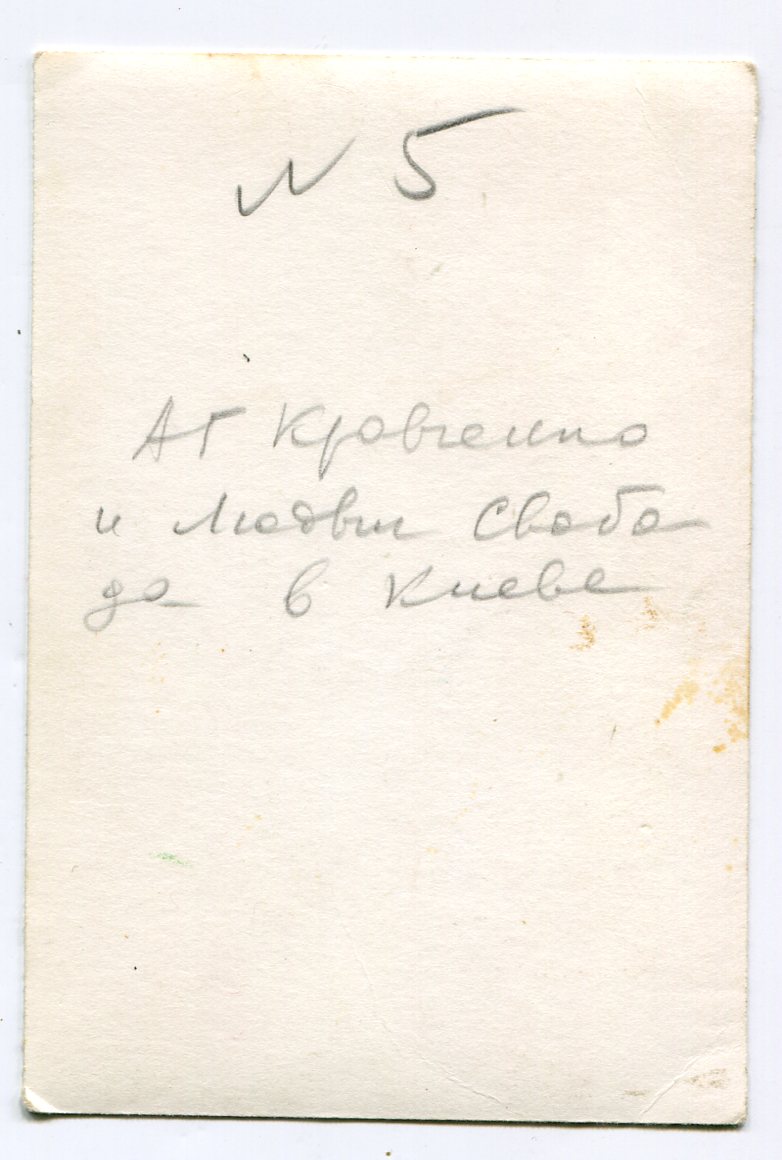 N 5
АГ Кравченко
и Людвиг Свобо
да в Киеве